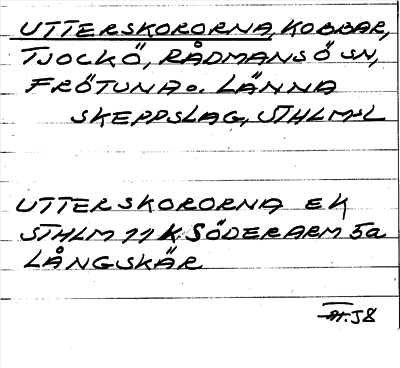 UTTERSKORORNA, KOBBAR,
TJOCKÖ, RÅDMANSÖ SN,
FRÖTUNA o. LÄNNA
SKEPPSLAG, STHLMS L
UTTERSKORORNA EK
STHLM 11 K SÖDERARM 5a
LÅNGSKÄR